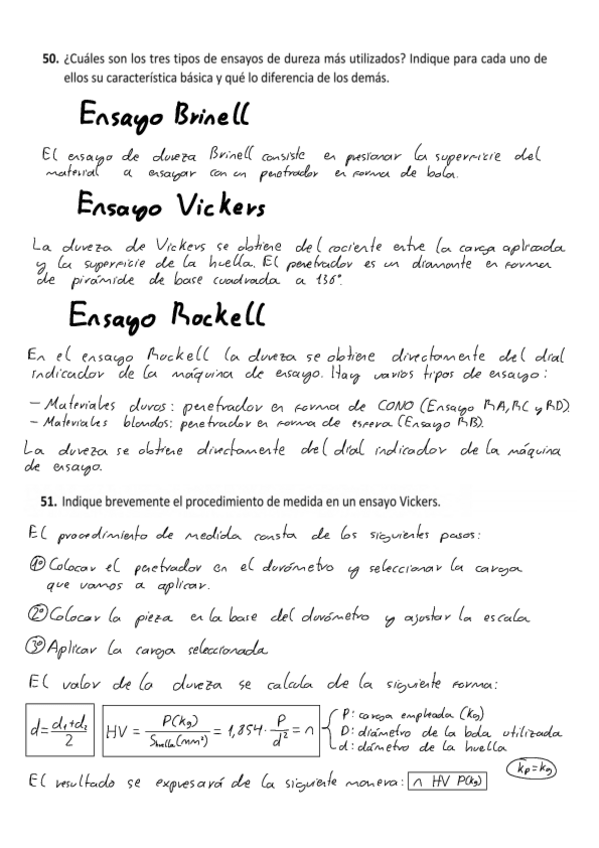 50. ¿Cuáles son los tres tipos de ensayos de dureza más utilizados? Indique para cada uno de
ellos su característica básica y qué lo diferencia de los demás.
Ensayo Brinell
El ensayo de dureza Brinell consiste en presionar la superficie del
material a ensayar con un penetrador en forma de bola.
Ensayo Vickers
La dureza de Vickers se obtiene del cociente entre la carga aplicada
y la superficie de la huella. El penetrador es un diamante en forma
de pirámide de base cuadrada a 136°.
Ensayo Rockell
En el ensayo Rockell la dureza se obtiene directamente del dial
indicador de la máquina de ensayo. Hay varios tipos de ensayo:
- Materiales duros: penetrador en forma de CONO (Ensayo RA, RC y RD).
- Materiales blandos: penetrador en forma de esfera (Ensayo RB).
La dureza se obtiene directamente del dial indicador de la máquina
de ensayo.
51. Indique brevemente el procedimiento de medida en un ensayo Vickers.
El procedimiento de medida consta de los siguientes pasos:
1º Colocar el penetrador en el durómetro y seleccionar la carga
que vamos a aplicar.
2º Colocar la pieza en la base del durómetro y ajustar la escala
3º Aplicar la carga seleccionada
El valor de la dureza se calcula de la siguiente forma:
d = d1+d2 / 2
HV = P(kg) / Shuella(mm²) = 1,854 · P / d² = n
P: carga empleada (kg)
D: diámetro de la bola utilizada
d: diámetro de la huella
kp=kg
El resultado se expresará de la siguiente manera: n HV P(kg)